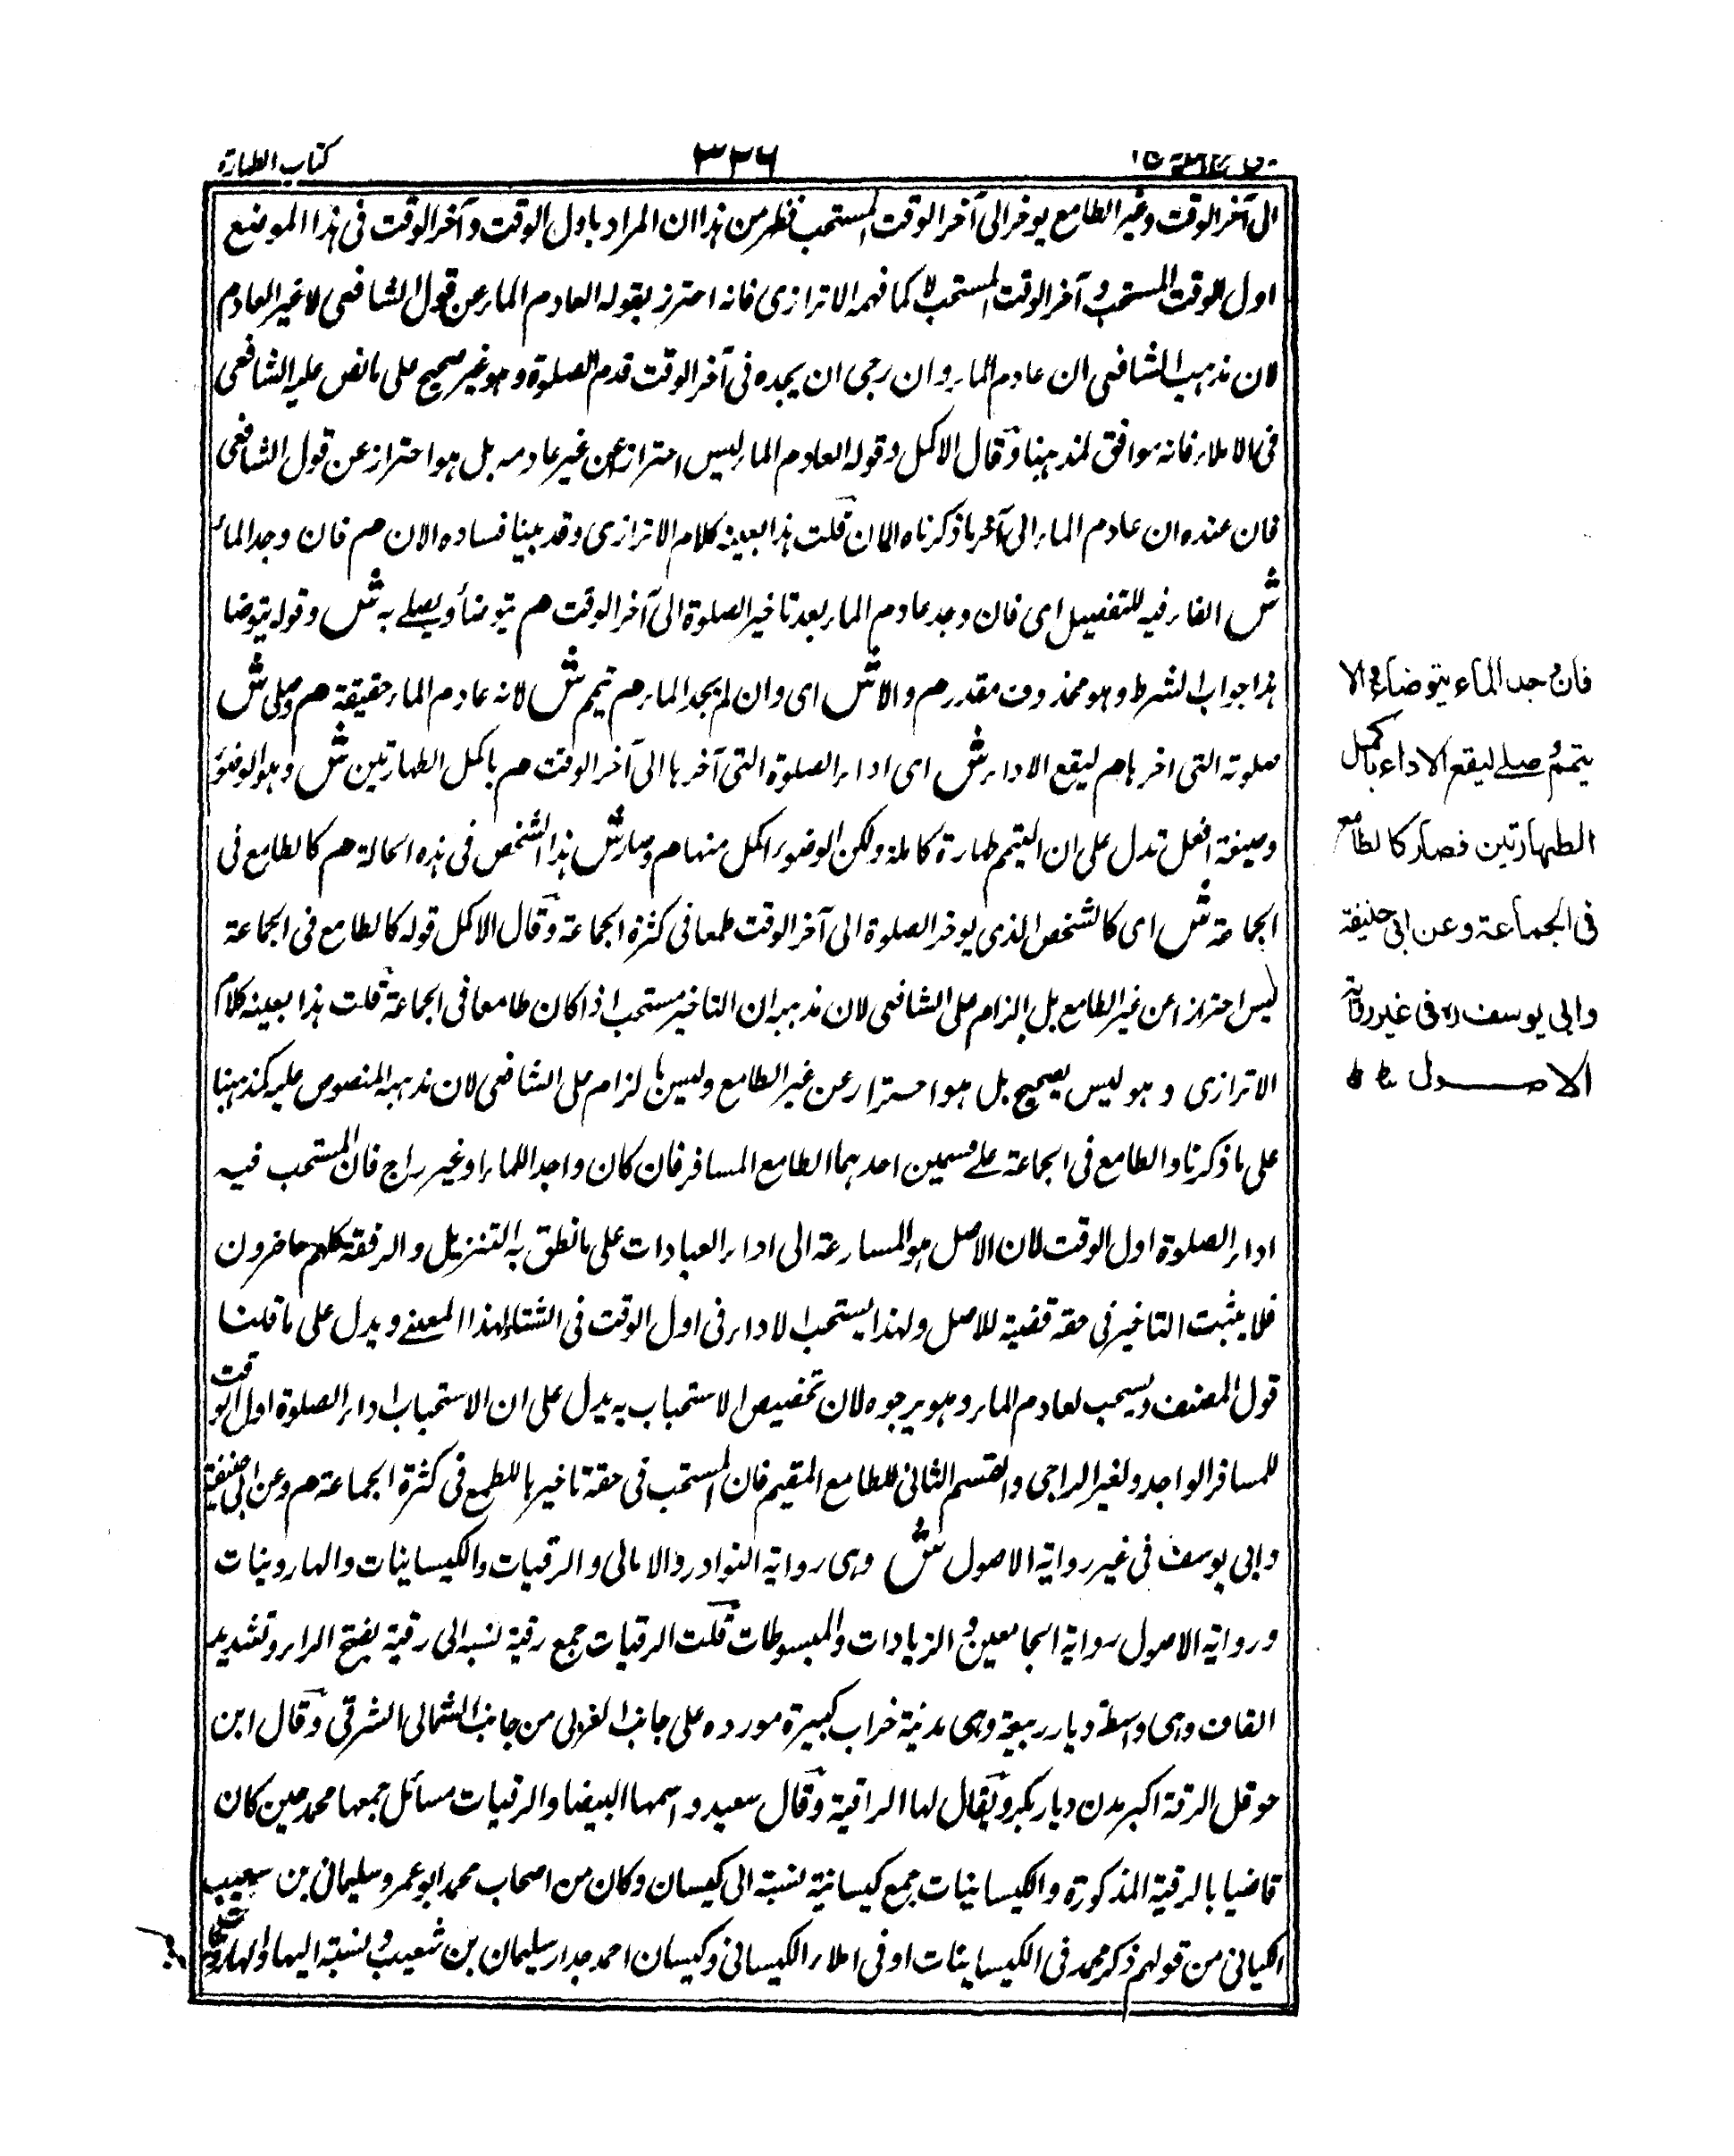 كتاب الطهارة
٣٣٦
الى آخر الوقت وغير الطامع يوخر الى آخر الوقت المستحب فظهر من هذا ان المراد باول الوقت وآخر الوقت فى هذا الموضع
اول الوقت المستحب وآخر الوقت المستحب لا كما فهمه الاترازى فانه احترز بقوله العادم الماء عن قول الشافعى لا غير العادم
لان مذهب الشافعى ان عادم الماء وان رجى ان يجده فى آخر الوقت قدم الصلوة وهو غير صحيح على ما نص عليه الشافعى
فى الاملاء فانه موافق لمذهبنا وقال الاكمل وقوله العادم الماء ليس احترازا عن غير عادمه بل هو احتراز عن قول الشافعى
فان عنده ان عادم الماء الى آخر ما ذكرناه الان قلت هذا بعينه كلام الاترازى وقد بينا فساده الان م فان وجد الماء
ش الفاء فيه للتفصيل اى فان وجد عادم الماء بعد تاخير الصلوة الى آخر الوقت م يتوضأ ويصلے به ش وقوله يتوضا
هذا جواب الشرط وهو محذوف مقدر م والا ش اى وان لم يجد الماء م تيمم ش لانه عادم الماء حقيقة م وصلى ش
صلوته التى اخرها م ليقع الاداء ش اى اداء الصلوة التى آخرها الى آخر الوقت م باكمل الطهارتين ش وهو الوضوء
وصيغة افعل تدل على ان التيمم طهارة كاملة ولكن الوضوء اكمل منها م وصار ش هذا الشخص فى هذه الحالة م كالطامع فى
الجماعة ش اى كالشخص الذى يوخر الصلوة الى آخر الوقت طمعا فى كثرة الجماعة وقال الاكمل قوله كالطامع فى الجماعة
ليس احترازا عن غير الطامع بل الزام على الشافعى لان مذهبه ان التاخير مستحب اذا كان طامعا فى الجماعة قلت هذا بعينه كلام
الاترازى وهو ليس بصحيح بل هو احتراز عن غير الطامع وليس بالزام على الشافعى لان مذهبه المنصوص عليه كمذهبنا
على ما ذكرنا والطامع فى الجماعة علے قسمين احدهما الطامع المسافر فان كان واجدا للماء او غير راج فان المستحب فيه
اداء الصلوة اول الوقت لان الاصل هو المسارعة الى اداء العبادات على ما نطق به التنزيل والرفقة كلهم حاضرون
فلا يثبت التاخير فى حقه قضية للاصل ولهذا يستحب الاداء فى اول الوقت فى الشتاء لهذا المعنے ويدل على ما قلنا
قول المصنف ويستحب لعادم الماء وهو يرجوه لان تخصيص الاستحباب به يدل على ان الاستحباب اداء الصلوة اول الوقت
للمسافر الواجد ولغير الراجى والقسم الثانى للطامع المقيم فان المستحب فى حقه تاخيرها للطمع فى كثرة الجماعة م وعن ابى حنيفة
وابى يوسف فى غير رواية الاصول ش وهى رواية النوادر والامالى والرقيات والكيسانيات والهارونيات
ورواية الاصول رواية الجامعين والزيادات والمبسوطات قلت الرقيات جمع رقية نسبة الى رقية بفتح الراء وتشديد
القاف وهى واسطة ديار ربيعة وهى مدينة خراب كبيرة مورده على جانب الغربى من جانب الشمالى الشرقى وقال ابن
حوقل الرقة اكبر مدن ديار بكر ويقال لها الراقية وقال سعيد واسمها البيضا والرقيات مسائل جمعها محمد حين كان
قاضيا بالرقية المذكورة والكيسانيات جمع كيسانية نسبة الى كيسان وكان من اصحاب محمد ابو عمرو سليمانى بن سعيب
الكيانى من قولهم ذكر محمد فى الكيسانيات او فى املاء الكيسانى وكيسان احمد جدار سليمان بن شعيب ونسبة اليها والهارونيات
فان وجد الماء يتوضأ والا
يتمم وصلے ليقع الاداء باكمل
الطهارتين فصار كالطامع
فى الجماعة وعن ابى حنيفة
وابى يوسف رح فى غير رواية
الاصول